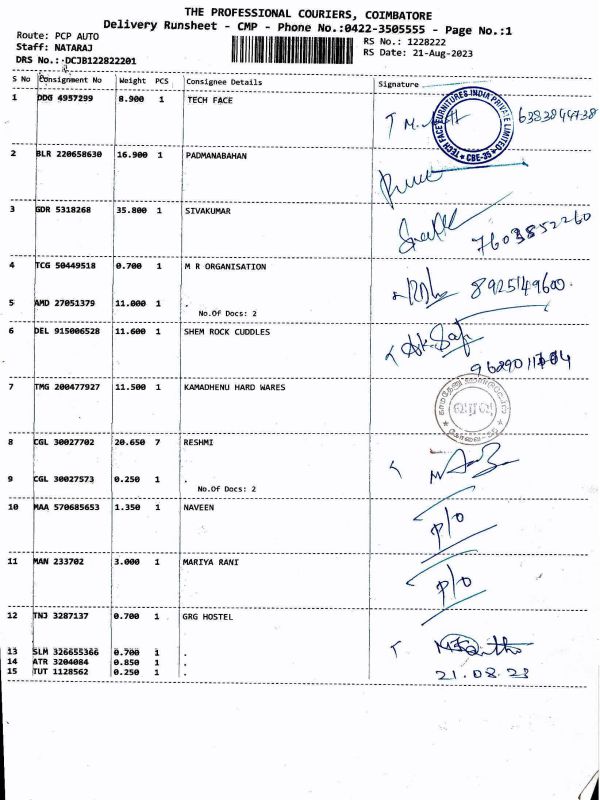 THE PROFESSIONAL COURIERS, COIMBATORE
Delivery Runsheet - CMP - Phone No.:0422-3505555 - Page No.:1
Route: PCP AUTO
Staff: NATARAJ
DRS No.: DCJB122822201
RS No.: 1228222
RS Date: 21-Aug-2023
S No Consignment No Weight PCS Consignee Details Signature
1 DDG 4957299 8.900 1 TECH FACE
TECH FACE FURNITURES INDIA PRIVATE LIMITED
★ CBE-35 ★
2 BLR 220658630 16.900 1 PADMANABAHAN
3 GDR 5318268 35.800 1 SIVAKUMAR
7603852260
4 TCG 50449518 0.700 1 M R ORGANISATION
8925149600
5 AMD 27051379 11.000 1 .
No.Of Docs: 2
6 DEL 915006528 11.600 1 SHEM ROCK CUDDLES
7 TMG 200477927 11.500 1 KAMADHENU HARD WARES
வரவு
8 CGL 30027702 20.650 7 RESHMI
9 CGL 30027573 0.250 1 .
No.Of Docs: 2
10 MAA 570685653 1.350 1 NAVEEN
P/O
11 MAN 233702 3.000 1 MARIYA RANI
P/O
12 TNJ 3287137 0.700 1 GRG HOSTEL
13 SLM 326655366 0.700 1 .
14 ATR 3204084 0.850 1 .
15 TUT 1128562 0.250 1 .
21.08.23